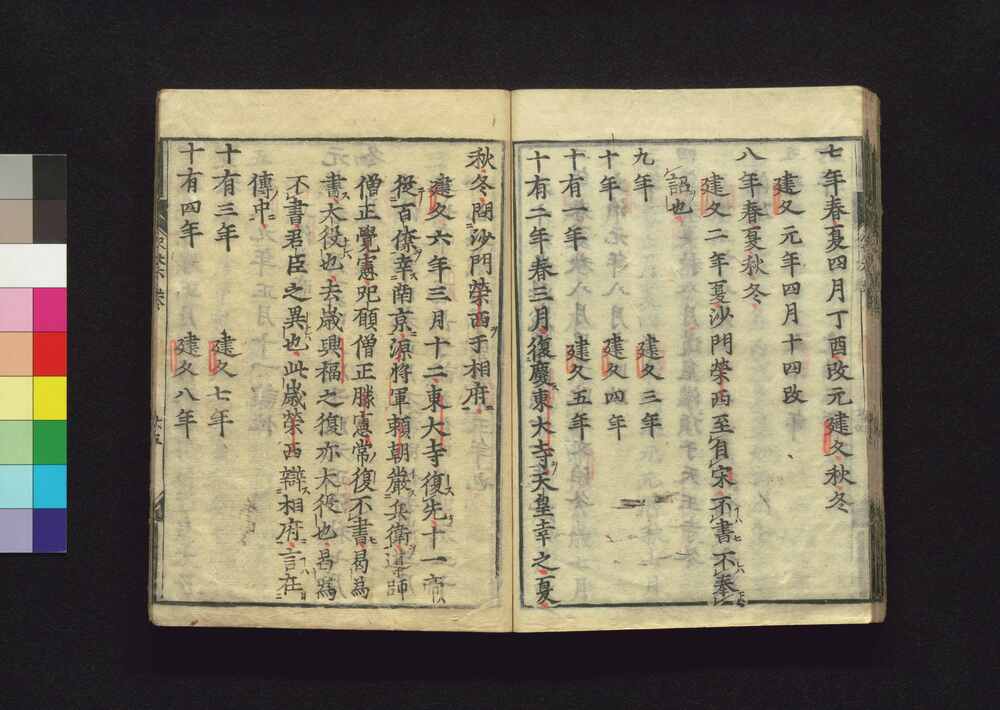 七年春夏四月丁酉改元建久秋冬
建久元年四月十四改
八年春夏秋冬
建久二年夏沙門榮西至自宋不書不奉
詔也
九年 建久三年
十年 建久四年
十有一年 建久五年
十有二年春三月復慶東大寺天皇幸之夏
秋冬問沙門榮西于相府
建久六年三月十二東大寺復先十一帝
從百僚幸南京源將軍賴朝嚴兵衛導師
僧正覺憲咒願僧正勝憲常復不書曷為
書大役也去歲興福之復亦大役也曷為
不書君臣之異也此歲榮西辯相府言在
傳中
十有三年 建久七年
十有四年 建久八年
六五